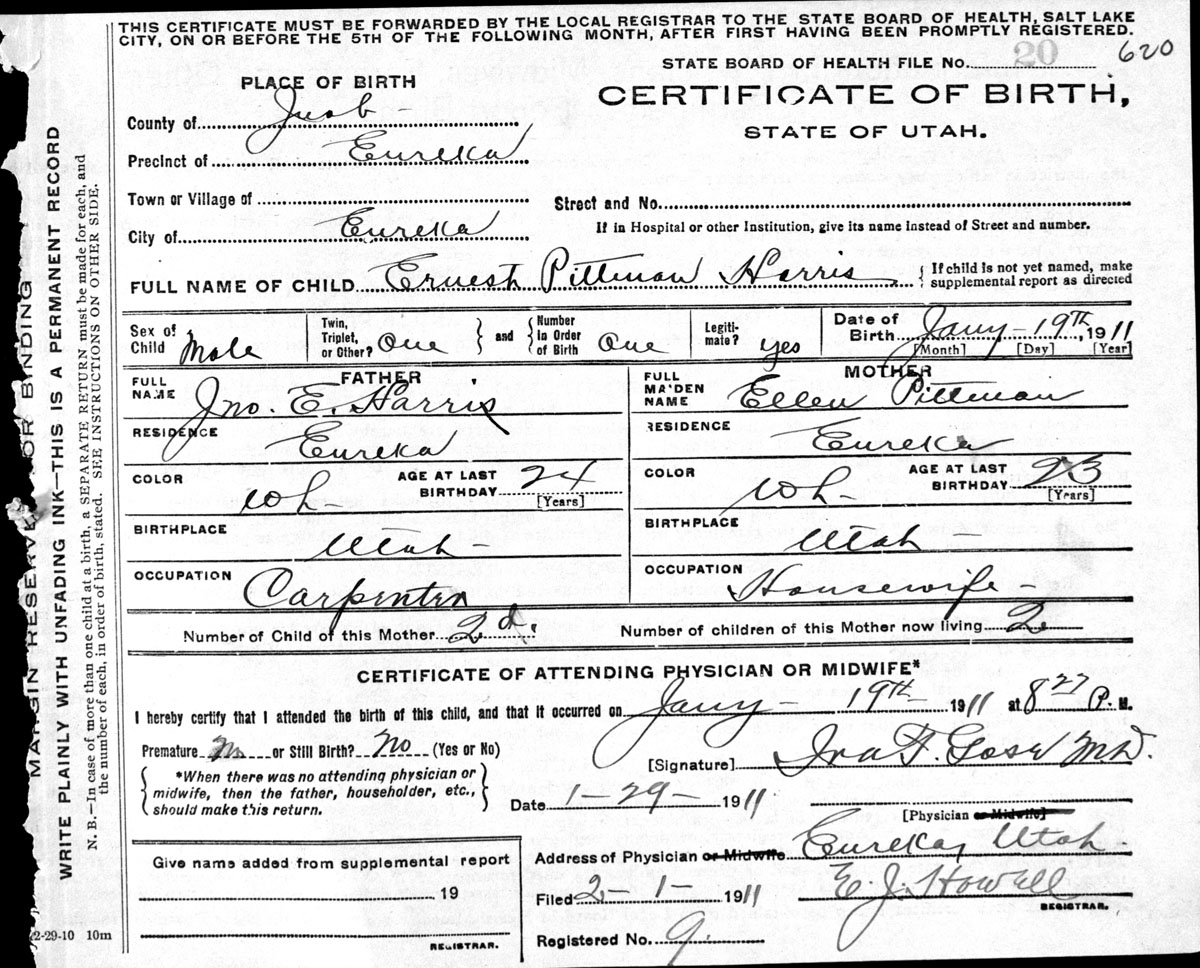 THIS CERTIFICATE MUST BE FORWARDED BY THE LOCAL REGISTRAR TO THE STATE BOARD OF HEALTH, SALT LAKE
CITY, ON OR BEFORE THE 5TH OF THE FOLLOWING MONTH, AFTER FIRST HAVING BEEN PROMPTLY REGISTERED.
STATE BOARD OF HEALTH FILE No. 20 620
PLACE OF BIRTH
CERTIFICATE OF BIRTH,
STATE OF UTAH.
County of Juab
Precinct of Eureka
Town or Village of
Street and No.
City of Eureka
If in Hospital or other Institution, give its name instead of Street and number.
FULL NAME OF CHILD Ernest Pittman Harris { If child is not yet named, make
supplemental report as directed
Sex of Child Male
Twin, Triplet, or Other? One } and { Number in Order of Birth One
Legitimate? yes
Date of Birth Jany - 19th, 1911
[Month] [Day] [Year]
FATHER
FULL NAME Jno. E. Harris
RESIDENCE Eureka
COLOR Wh - AGE AT LAST BIRTHDAY 24 [Years]
BIRTHPLACE Utah -
OCCUPATION Carpenter
MOTHER
FULL MAIDEN NAME Ellen Pittman
RESIDENCE Eureka
COLOR Wh - AGE AT LAST BIRTHDAY 23 [Years]
BIRTHPLACE Utah -
OCCUPATION Housewife -
Number of Child of this Mother 2d. Number of children of this Mother now living 2
CERTIFICATE OF ATTENDING PHYSICIAN OR MIDWIFE*
I hereby certify that I attended the birth of this child, and that it occurred on Jany - 19th 1911 at 8 27 P. M.
Premature No or Still Birth? No (Yes or No)
[Signature] Ira F. M.D.
{ *When there was no attending physician or
midwife, then the father, householder, etc.,
should make this return. }
Date 1-29- 1911
[Physician or Midwife]
Address of Physician or Midwife Eureka, Utah.
Filed 2-1- 1911 E. J. Howell
REGISTRAR.
Registered No. 9.
Give name added from supplemental report
19
REGISTRAR.
2-29-10 10m
MARGIN RESERVE OR BINDING
WRITE PLAINLY WITH UNFADING INK—THIS IS A PERMANENT RECORD
N. B.—In case of more than one child at a birth, a SEPARATE RETURN must be made for each, and
the number of each, in order of birth, stated. SEE INSTRUCTIONS ON OTHER SIDE.